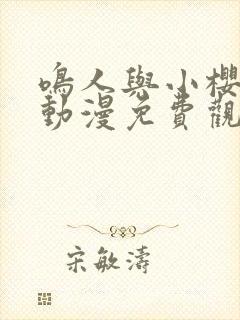 鳴人與小櫻
動漫免費觀
宋敏濤